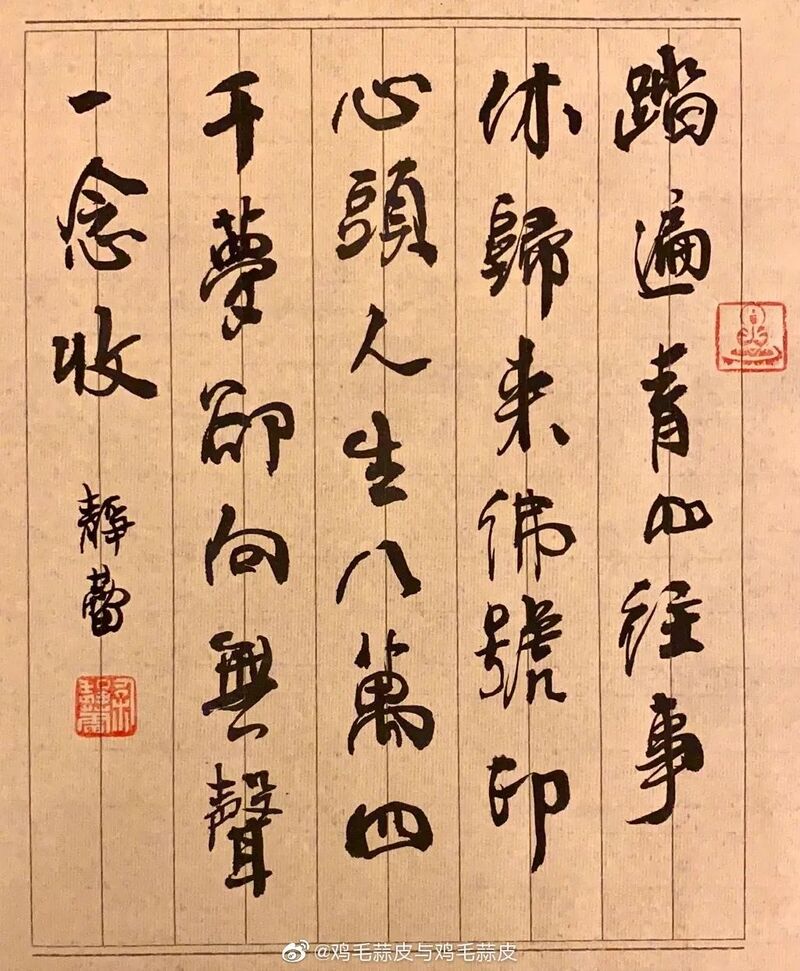 踏遍青山往事
休歸來佛號印
心頭人生八萬四
千夢卻向無聲
一念收
靜蕾
@鸡毛蒜皮与鸡毛蒜皮